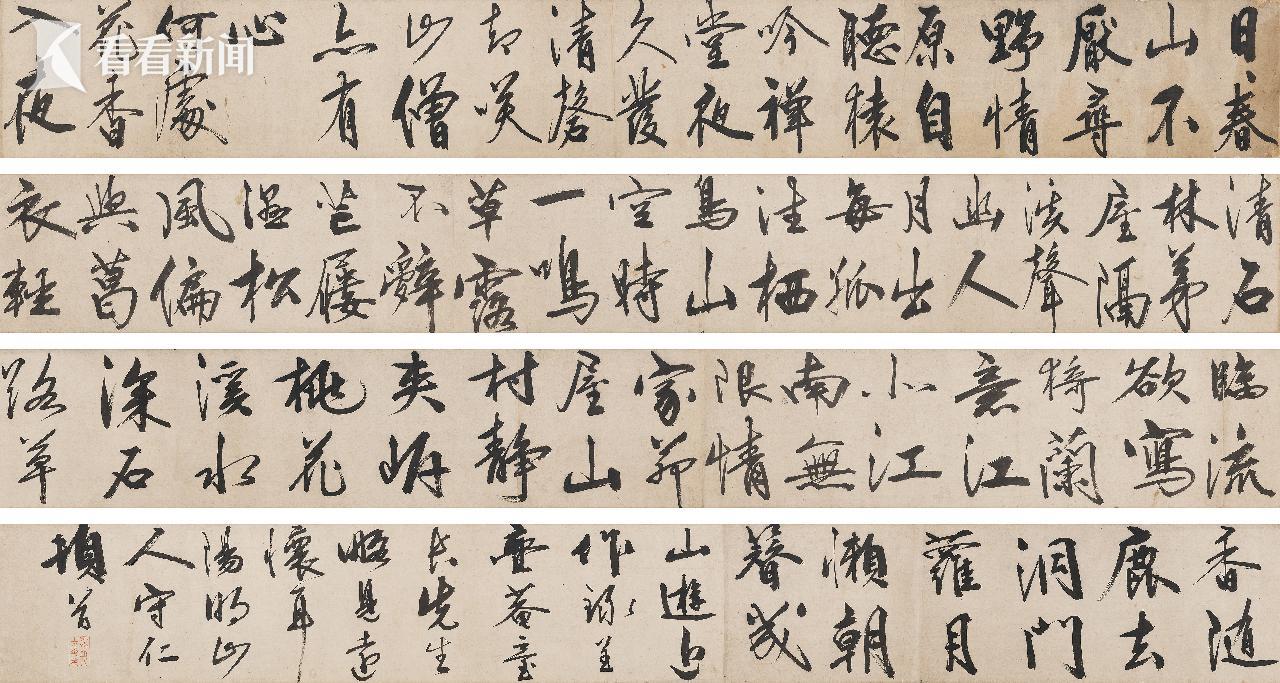 日春
山不
厭尋
野情
原自
聽猿
吟禪
堂夜
久發
清磬
却咲
山僧
亦有
心
何處
花香
入夜
清石
林茅
屋隔
溪聲
幽人
月出
每孤
往栖
鳥山
空時
一鳴
草露
不辭
芒屨
濕松
風偏
與葛
衣輕
臨流
欲寫
猗蘭
意江
北江
南無
限情
家茆
屋山
村靜
夾岸
桃花
溪水
深石
路草
香随
鹿去
洞門
蘿月
朝
簪
山遊近
作録呈
菴
長先生
略見遠
懷耳
陽明山
人守仁
頓首
看看新闻